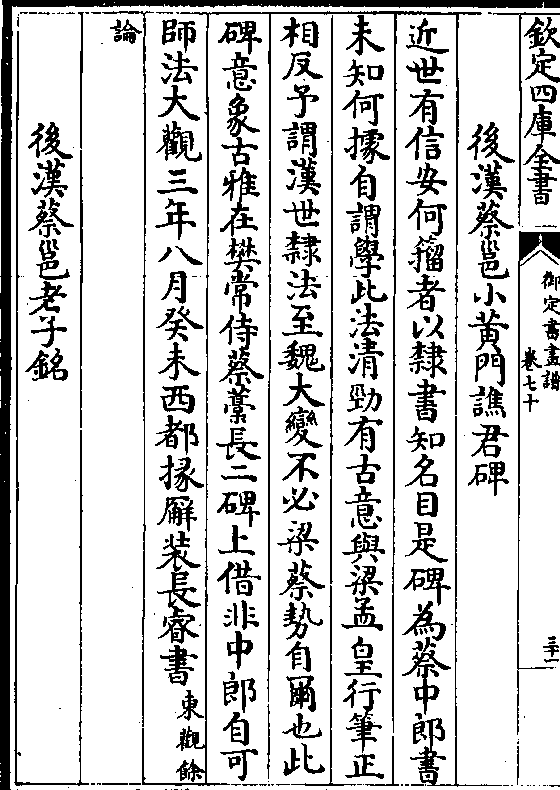 欽定四庫全書
御定書畫譜
卷七十
三十二
後漢蔡邕小黄門譙君碑
近世有信安何籀者以隸書知名目是碑為蔡中郎書
未知何據自謂學此法清勁有古意與梁孟皇行筆正
相反予謂漢世隸法至魏大變不必梁蔡勢自爾也此
碑意象古雅在樊常侍蔡藁長二碑上借非中郎自可
師法大觀三年八月癸未西都掾廨装長睿書東觀餘
論
後漢蔡邕老子銘